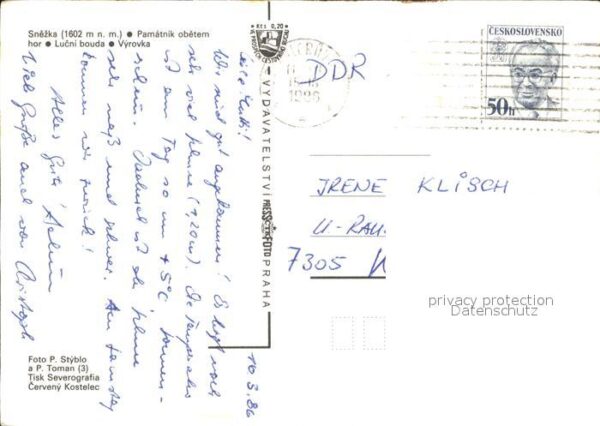 Sněžka (1602 m n. m.) ● Památník obětem
hor ● Luční bouda ● Výrovka
Kčs 0,20
10.3.86
Wir sind gut angekommen! Es liegt noch
sehr viel Schnee (1,20 m). Die Temperatur
ist am Tag so um +5°C
schein. ist der Schnee
sehr naß und schwer. Am
kommen wir zurück!
Alles Gute
Viele Grüße auch von Christoph
VYDAVATELSTVÍ PRESSFOTO PRAHA
ČESKOSLOVENSKO
50h
1986
DDR
IRENE KLISCH
U-RAU.
7305
privacy protection
Datenschutz
Foto P. Stýblo
a P. Toman (3)
Tisk Severografia
Červený Kostelec